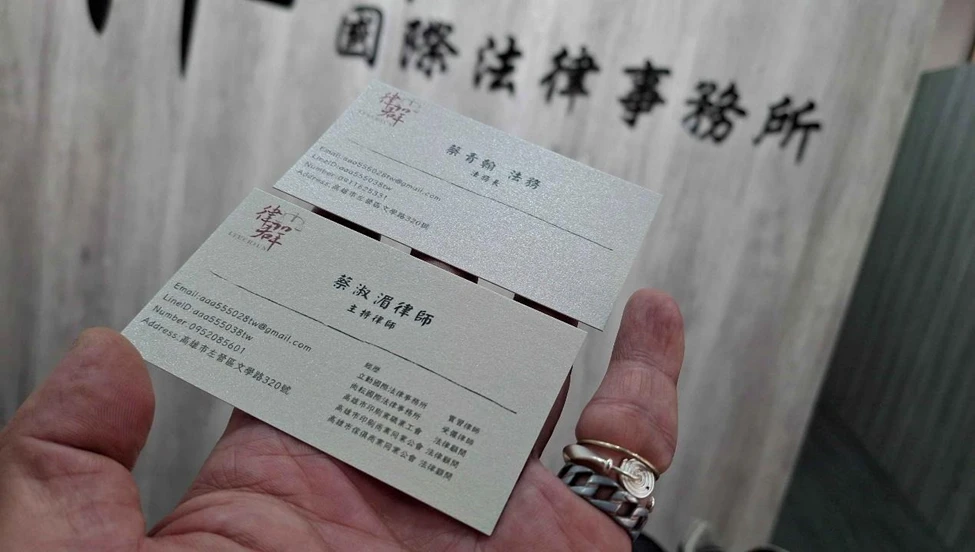 國際法律事務所
律群
蔡青翰 法務
法務長
Email:aaa555028tw@gmail.com
LineID:aaa555038tw
Address:高雄市左營區文學路320號
律群
蔡淑湄律師
主持律師
Email:aaa555028tw@gmail.com
LineID:aaa555038tw
Number:0952085601
Address:高雄市左營區文學路320號
經歷
立勤國際法律事務所 實習律師
國際法律事務所 受僱律師
高雄市印刷業職業工會 法律顧問
高雄市印刷商業同業公會 法律顧問
高雄市傢俱商業同業公會 法律顧問